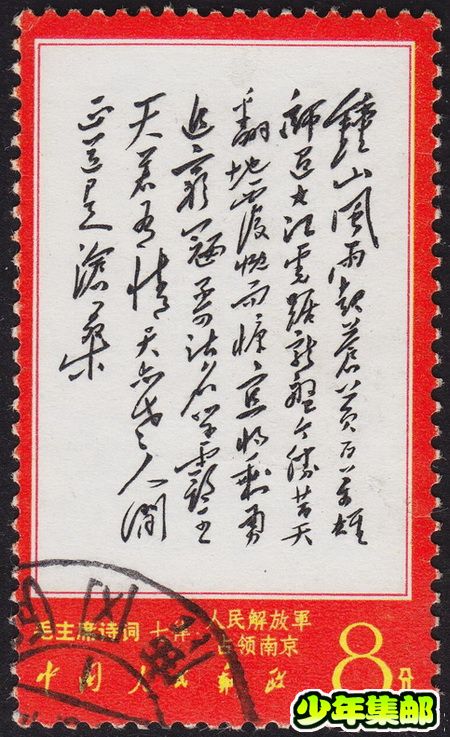 鐘山風雨起蒼黃百萬雄
師過大江虎踞龍盤今勝昔天
翻地覆慨而慷宜將剩勇
追窮寇不可沽名學霸王
天若有情天亦老人間
正道是滄桑
毛主席诗词 七律 人民解放軍
占领南京
中国人民邮政
8分
少年集邮